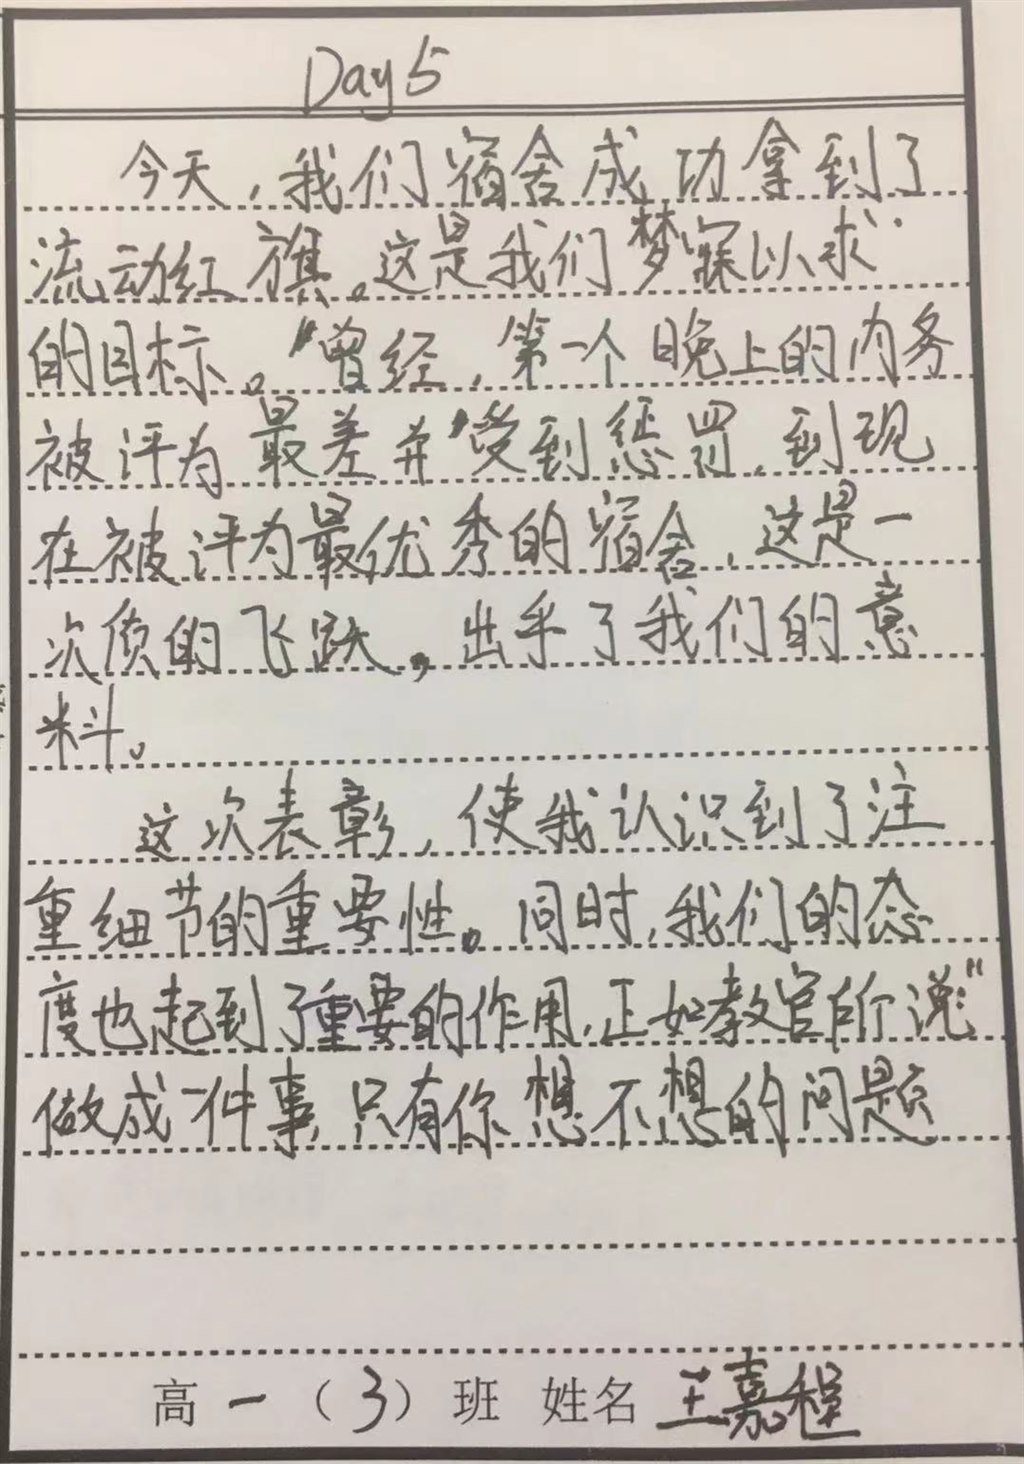 Day 5
今天，我们宿舍成功拿到了
流动红旗。这是我们"梦寐以求"
的目标。"曾经，第一个晚上的内务
被评为最差并"受到惩罚，到现
在被评为最优秀的宿舍，这是一
次质的飞跃，出乎了我们的意
料。
这次表彰，使我认识到了注
重细节的重要性。同时，我们的态
度也起到了重要的作用，正如教官所说"
做成一件事，只有你想不想的问题
高一（3）班 姓名 王嘉程